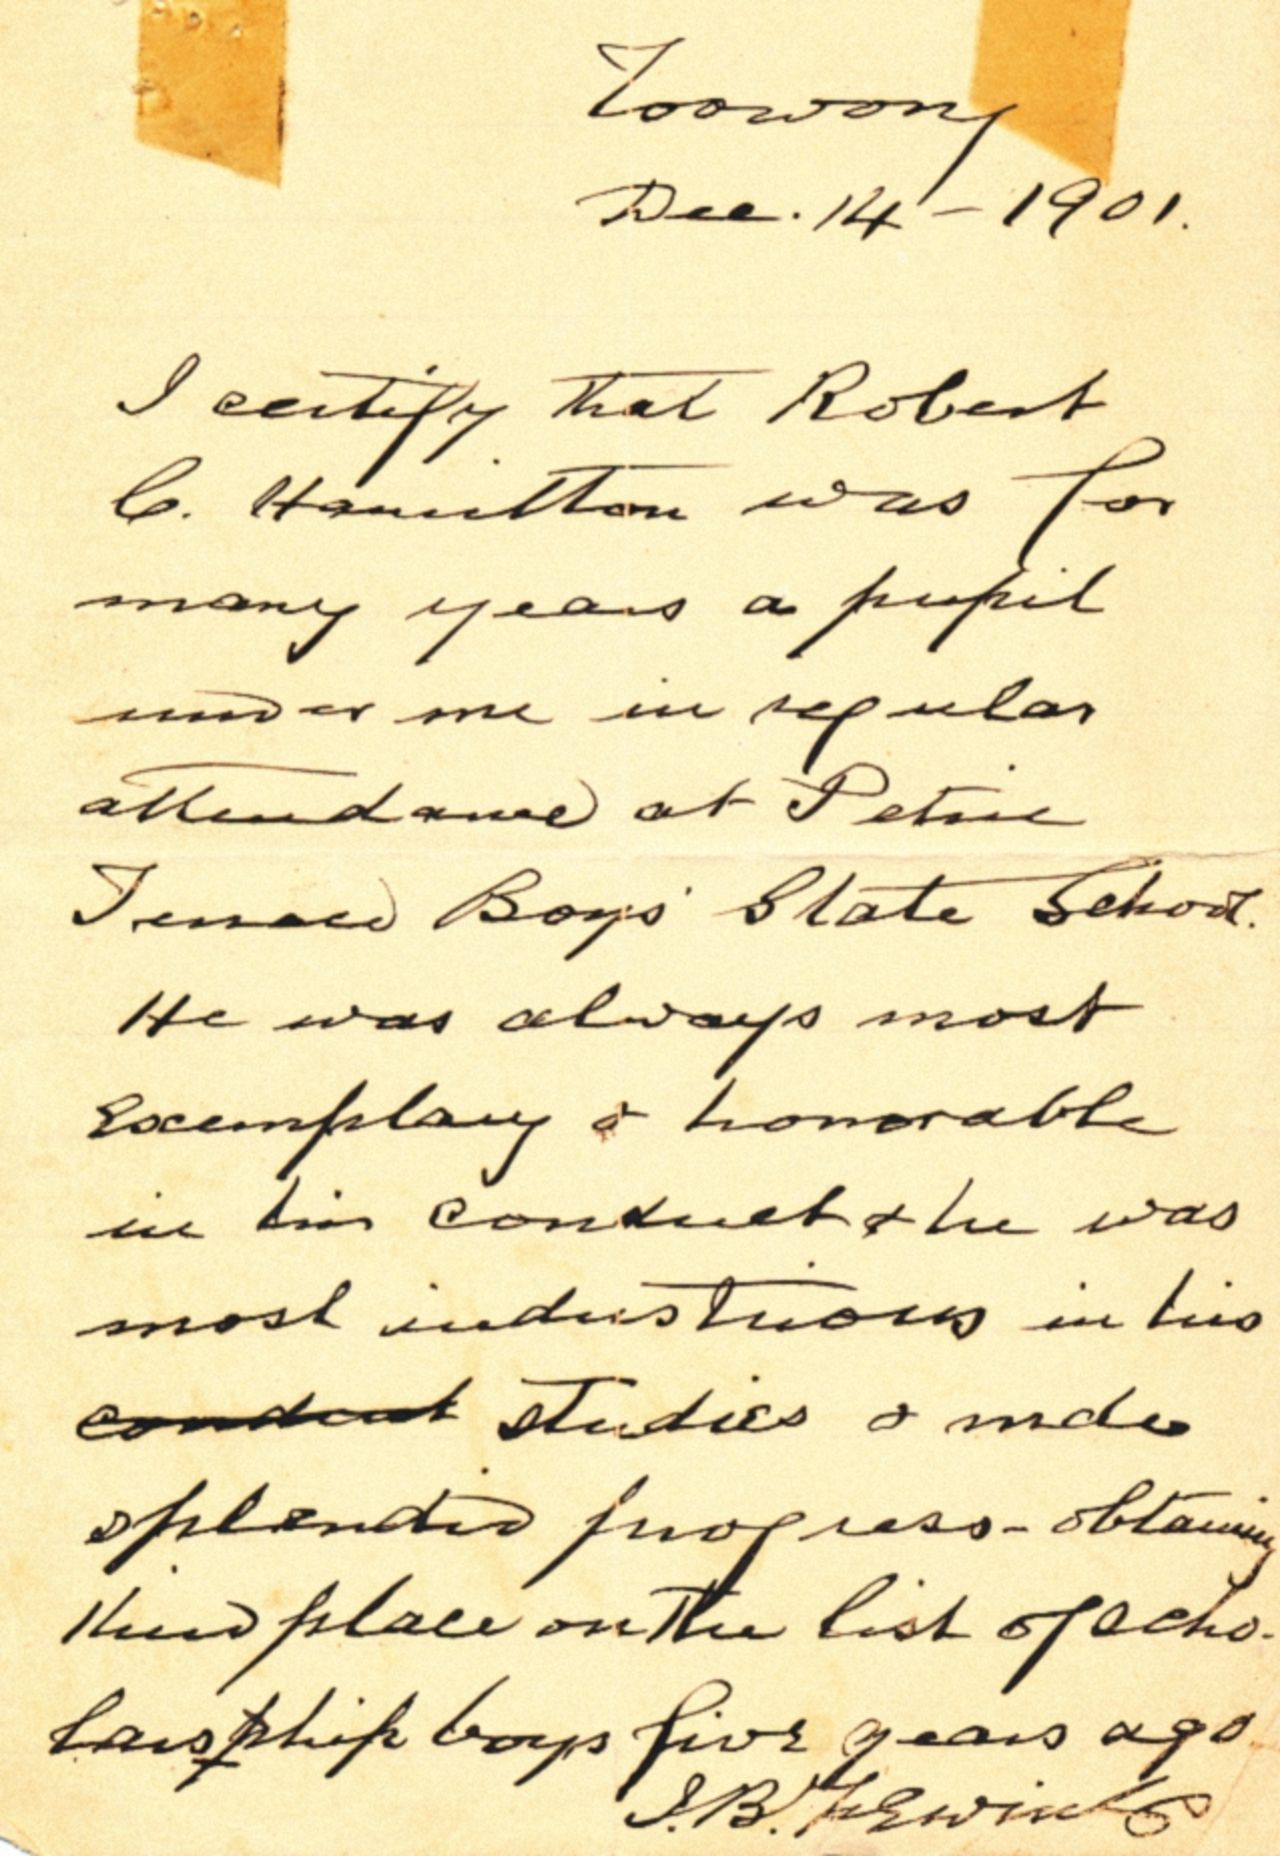 Toowong
Dec. 14 - 1901.
I certify that Robert
C. Hamilton was for
many years a pupil
under me in regular
attendance at Petrie
Terrace Boys' State School.
He was always most
exemplary & honorable
in his conduct & he was
most industrious in his
conduct studies & mde
splendid progress - obtaining
third place on the list of scho-
larship boys five years ago
J.B.